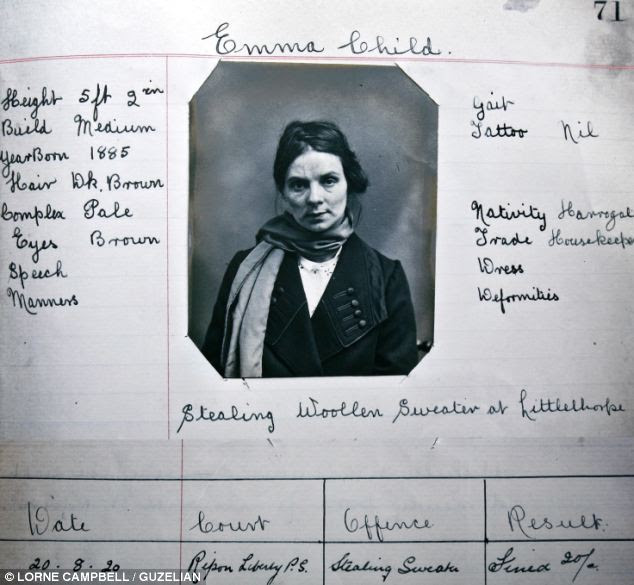 71
Emma Child.
Height 5 ft 2 in
Build Medium
Year Born 1885
Hair Dk. Brown
Complex Pale
Eyes Brown
Speech
Manners
Gait
Tattoo Nil
Nativity Harrogat
Trade Housekeeper
Dress
Deformities
Stealing Woollen Sweater at Littlethorpe
Date Court Offence Result.
20 . 8 . 20 Ripon Liberty P.S. Stealing Sweater Fined 20/-
© LORNE CAMPBELL / GUZELIAN